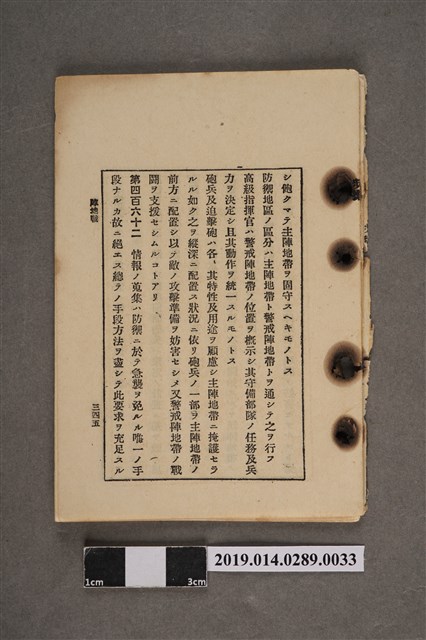 シ飽クマテ主陣地帶ヲ固守スヘキモノトス
防禦地區ノ區分ハ主陣地帶ト警戒陣地帶トヲ通シテ之ヲ行フ
高級指揮官ハ警戒陣地帶ノ位置ヲ概示シ其守備部隊ノ任務及兵
力ヲ決定シ且其動作ヲ統一スルモノトス
砲兵及迫擊砲ハ各〻其特性及用途ヲ顧慮シ主陣地帶ニ掩護セラ
ルル如ク之ヲ縱深ニ配置ス狀況ニ依リ砲兵ノ一部ヲ主陣地帶ノ
前方ニ配置シ以テ敵ノ攻擊準備ヲ妨害セシメ又警戒陣地帶ノ戰
鬪ヲ支援セシムルコトアリ
第四百六十二 情報ノ蒐集ハ防禦ニ於テ急襲ヲ免ルル唯一ノ手
段ナルカ故ニ絕エス總テノ手段方法ヲ盡シテ此要求ヲ充足スル
陣地戰
三四五
1cm
3cm
2019.014.0289.0033